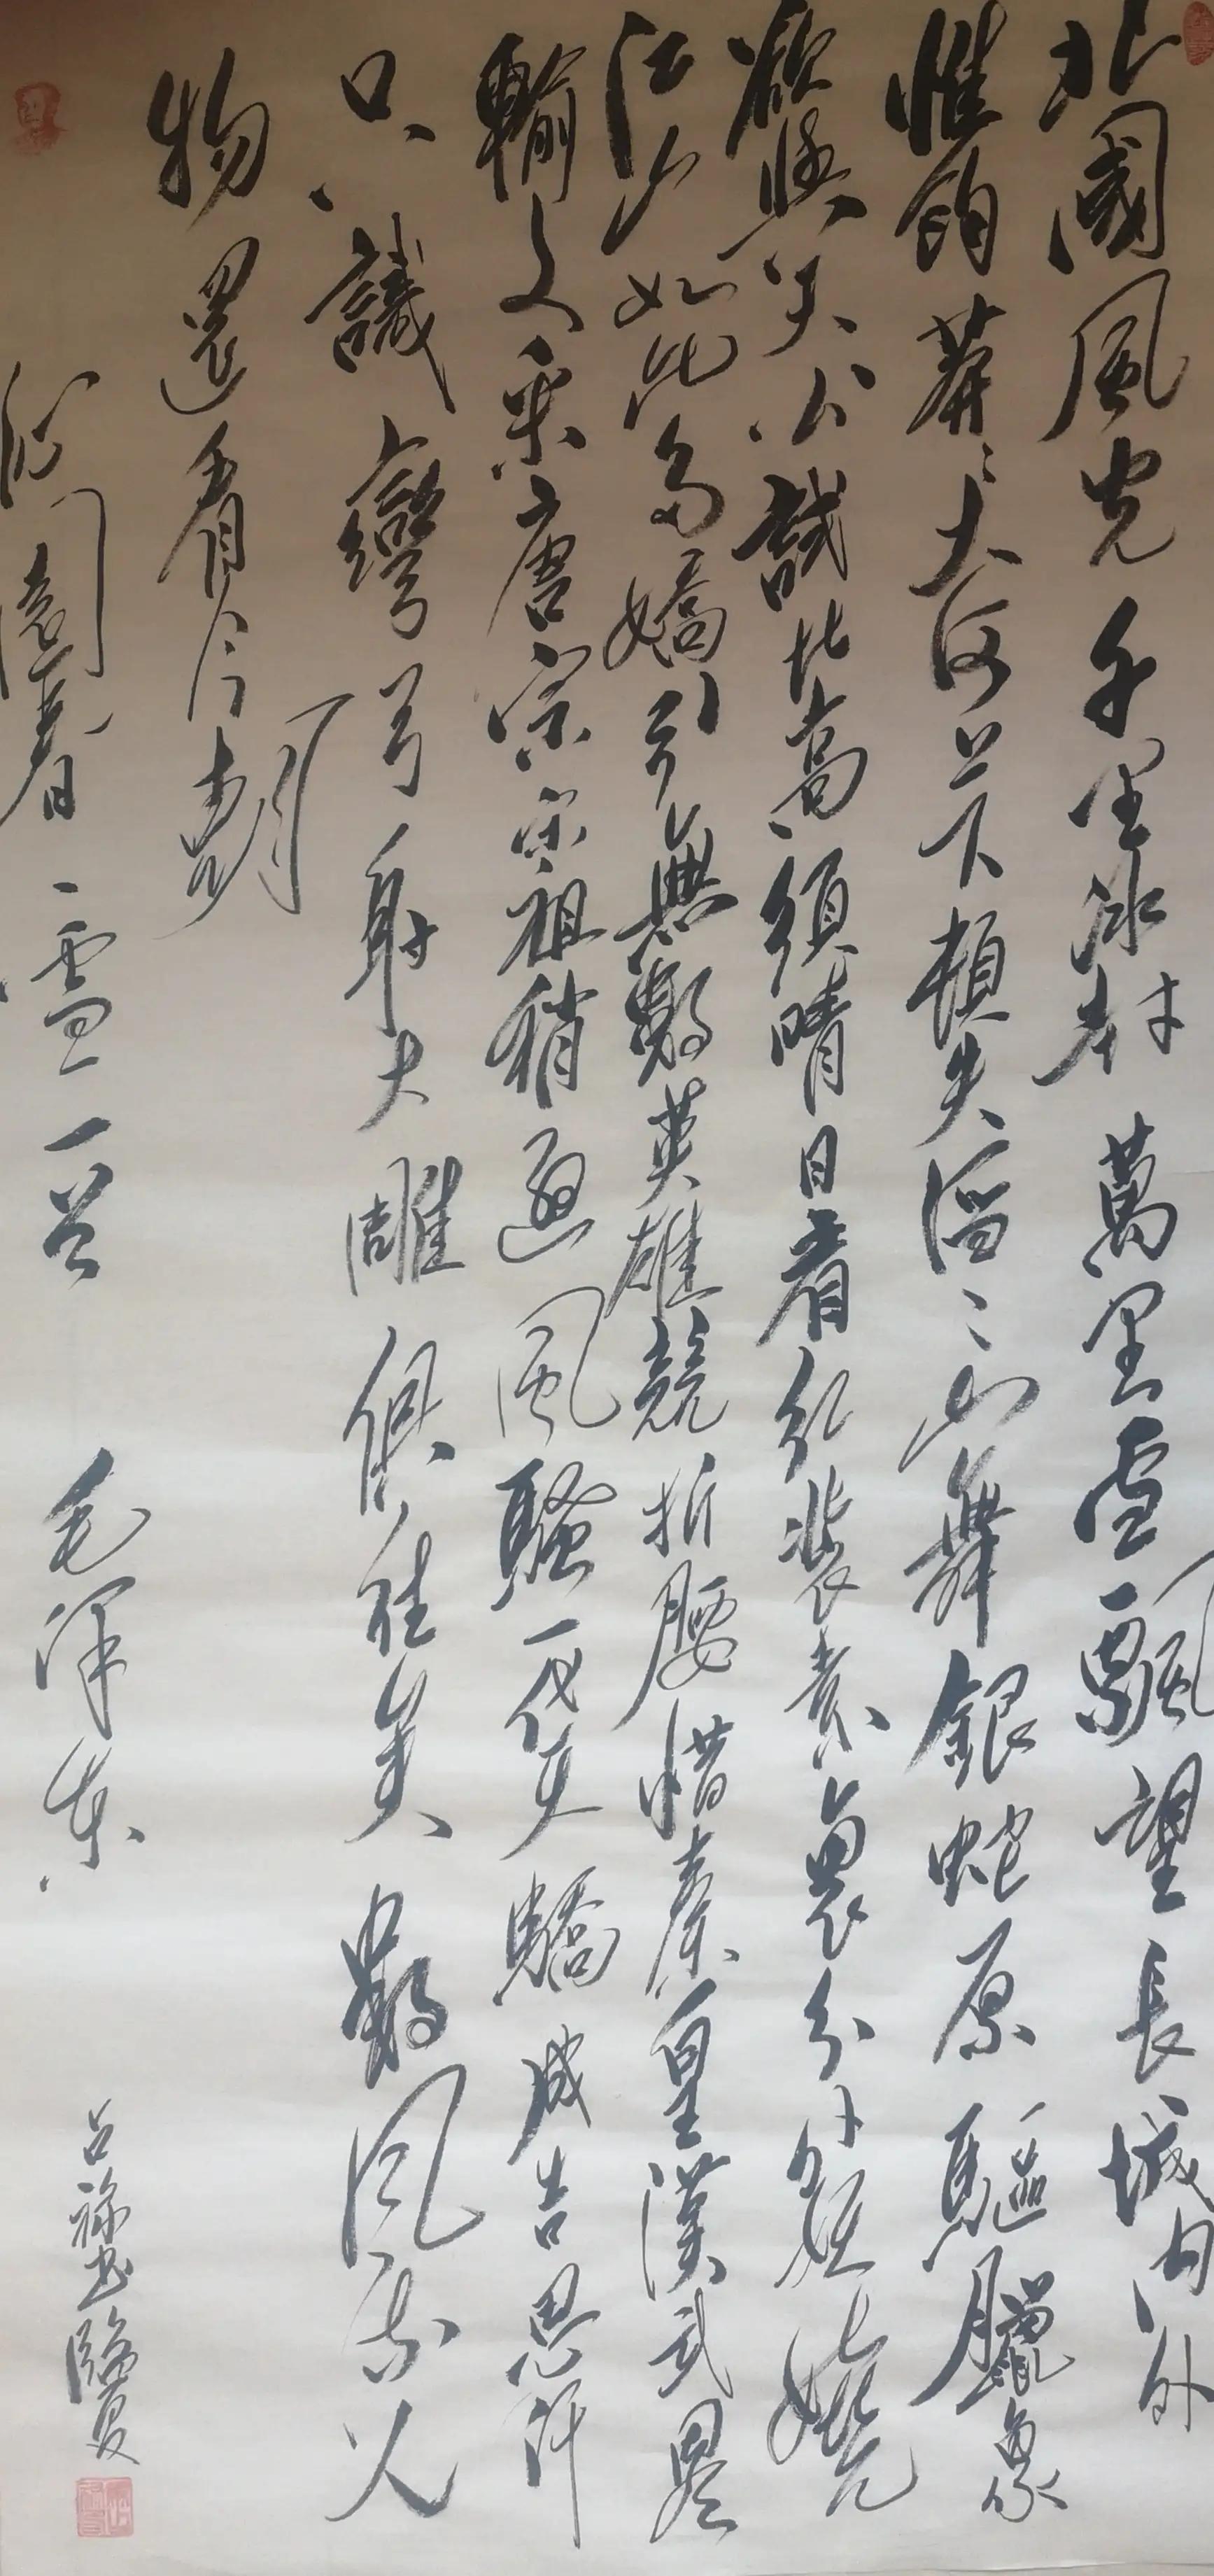 北國風光千里冰封萬里雪飄望長城內外
惟餘莽々大河上下頓失滔々山舞銀蛇原驅臘象
欲與天公試比高須晴日看紅裝素裹分外妖嬈
江山如此多嬌引無數英雄競折腰惜秦皇漢武畧
輸文采唐宗宋祖稍遜風騷一代天驕成吉思汗
只識彎弓射大雕俱往矣數風流人
物還看今朝
沁園春雪一首 毛澤東
呂